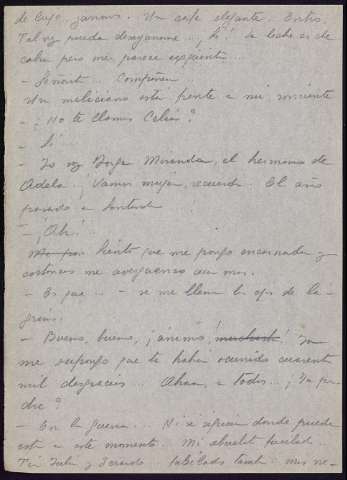 de lujo, jamás. Un café elegante. Entro.
Tal vez pueda desayunarme... ¡Sí! La leche es de
cabra pero me parece exquisita...
- Señorita... Compañera...
Un miliciano está frente a mi, sonriente
- ¿No te llamas Celia?
- Sí
- Yo soy Jorge Miranda, el hermano de
Adela. ¡Vamos mujer, recuerda. El año
pasado en Santander
- ¡Ah!
Siento que me pongo encarnada y
entonces me avergüenzo aun mas.
- Es que... - se me llenan los ojos de lá-
grimas.
- Bueno, bueno, ¡ánimo! Ya
me supongo que te habrán ocurrido cuarenta
mil desgracias... Ahora, a todos... ¿Tu pa-
dre?
- En la guerra. Ni siquiera donde puede
estar en este momento. Mi abuelito fusilado...
Tía Julia y Gerardo fusilados también: mis ne-